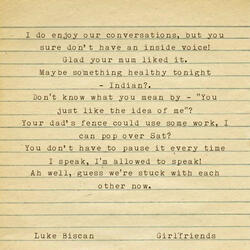 I do enjoy our conversations, but you
sure don't have an inside voice!
Glad your mum liked it.
Maybe something healthy tonight
- Indian?.
Don't know what you mean by - "You
just like the idea of me"?
Your dad's fence could use some work, I
can pop over Sat?
You don't have to pause it every time
I speak, I'm allowed to speak!
Ah well, guess we're stuck with each
other now.
Luke Biscan Girlfriends